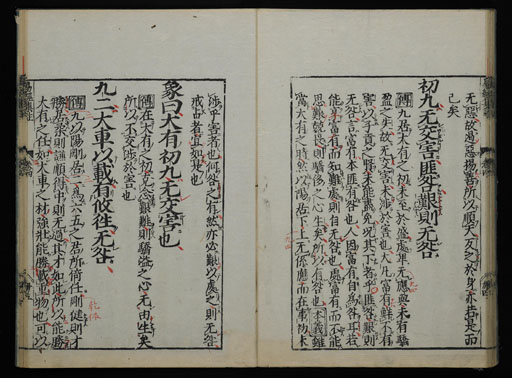 无惡故遏惡揚善所以順天反之於身亦若是而
已矣
初九无交害匪咎艱則无咎
傳九居大有之初未至於盛處卑无應與未有驕
盈之失故无交害未涉於害也大凡富有鮮不有
害以子貢之賢未能盡免況其下者乎匪咎艱則
无咎言富有本匪有咎也人因富有自為咎耳若
能享富有而知難處則自无咎也處富有而不能
思艱兢畏則驕侈之心生矣所以有咎也本義雖
當大有之時然以陽居下上无係應而在事初未
涉乎害者也何咎之有然亦必艱以處之則无咎
戒占者宜如是也
象曰大有初九无交害也
傳在大有之初克念艱難則驕溢之心无由生矣
所以不交涉於害也
九二大車以載有攸往无咎
傳九以陽剛居二為六五之君所倚任剛健則才
勝居柔則謙順得中則无過其才如此所以能勝
大有之任如大車之材強壯能勝載重物也可以